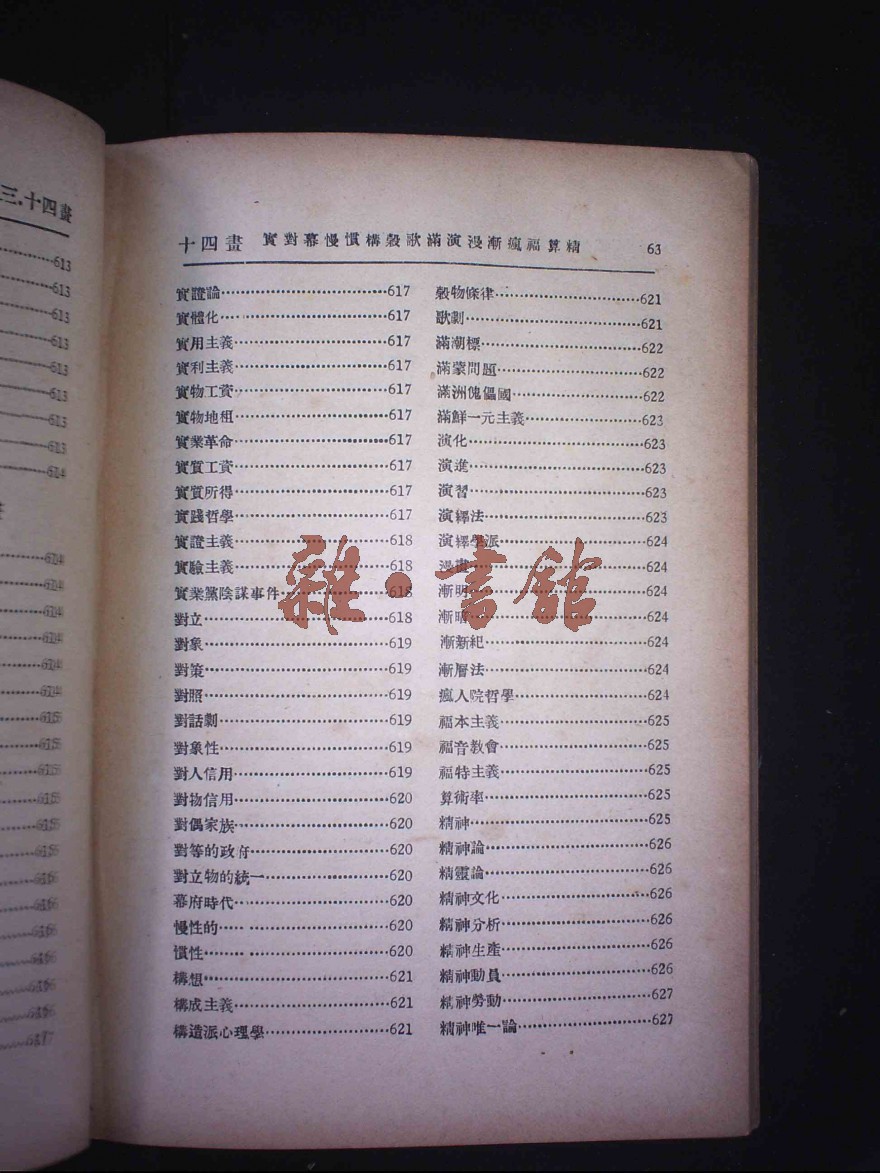 三.十四畫
613
613
613
613
613
613
613
614
614
614
614
614
614
614
615
615
615
615
615
615
616
616
616
616
616
617
十四畫 實對幕慢慣構穀歌滿演漫漸瘋福算精 63
實證論…617
實體化…617
實用主義…617
實利主義…617
實物工資…617
實物地租…617
實業革命…617
實質工資…617
實質所得…617
實踐哲學…617
實證主義…618
實驗主義…618
實業黨陰謀事件…618
對立…618
對象…619
對策…619
對照…619
對話劇…619
對象性…619
對人信用…619
對物信用…620
對偶家族…620
對等的政府…620
對立物的統一…620
幕府時代…620
慢性的…620
慣性…620
構想…621
構成主義…621
構造派心理學…621
穀物條律…621
歌劇…621
滿潮標…622
滿蒙問題…622
滿洲傀儡國…622
滿鮮一元主義…623
演化…623
演進…623
演習…623
演繹法…623
演繹學派…624
漫畫…624
漸明…624
漸…624
漸新紀…624
漸層法…624
瘋人院哲學…624
福本主義…625
福音教會…625
福特主義…625
算術率…625
精神…625
精神論…626
精靈論…626
精神文化…626
精神分析…626
精神生產…626
精神動員…626
精神勞動…627
精神唯一論…627
雜·書館